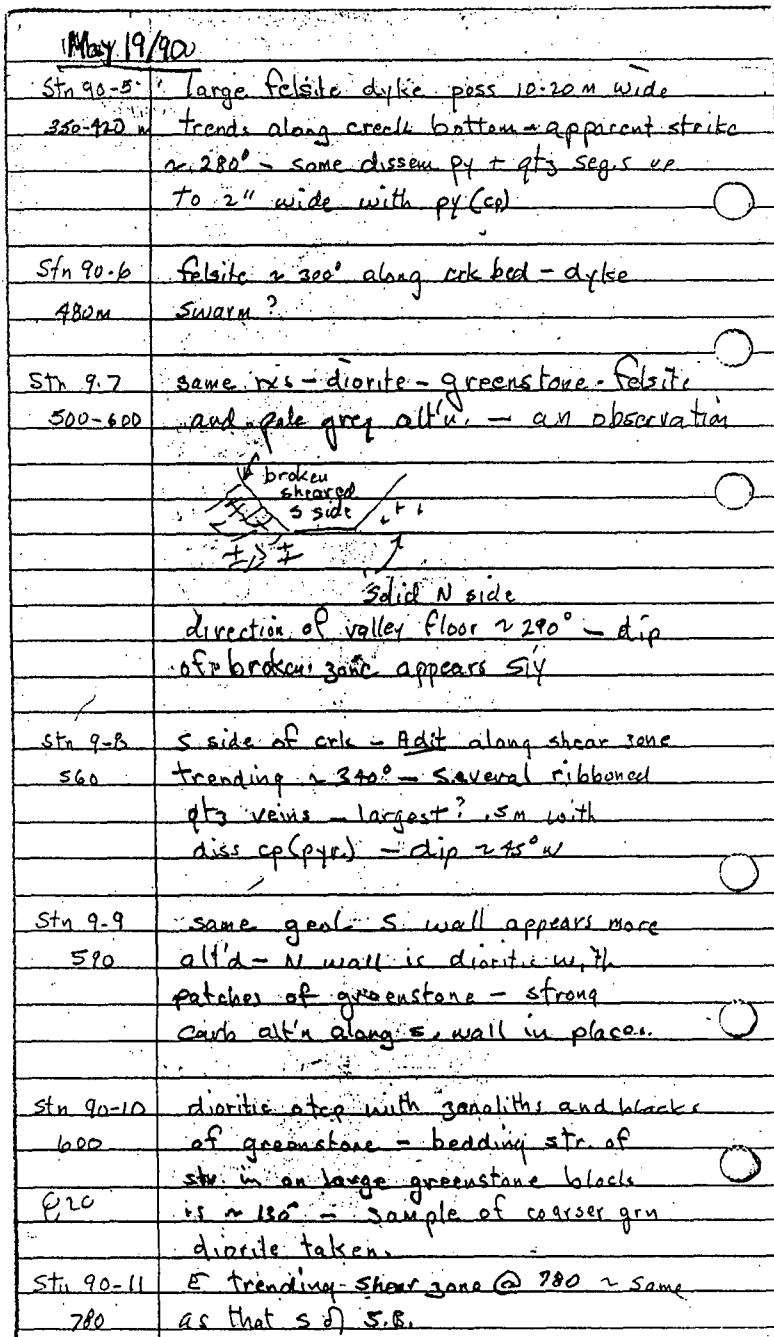 May 19/90
Stn 90-5 large felsite dyke poss 10-20 m wide
350-420 m trends along creek bottom - apparent strike
~ 280° - some dissem py + qtz segs up
to 2" wide with py (cp)
Stn 90-6 felsite ~ 300° along crk bed - dyke
480m swarm?
Stn 9-7 same rxs - diorite - greenstone - felsite
500-600 and pale grey alt'n. - an observation
broken
sheared
S side
Solid N side
direction of valley floor ~ 290° - dip
of broken zone appears S'ly
Stn 9-8 S side of crk - Adit along shear zone
560 trending ~ 340° - several ribboned
qtz veins - largest? .5m with
diss cp (pyr.) - dip ~ 45° W
Stn 9-9 same geol. S. wall appears more
590 alt'd - N wall is dioritic with
patches of greenstone - strong
carb alt'n along S. wall in places.
Stn 90-10 dioritic otcp with zenoliths and blocks
600 of greenstone - bedding str. of
in on large greenstone block
is ~ 130° - sample of coarser grn
diorite taken.
Stn 90-11 E trending shear zone @ 780 ~ same
780 as that S of S.B.